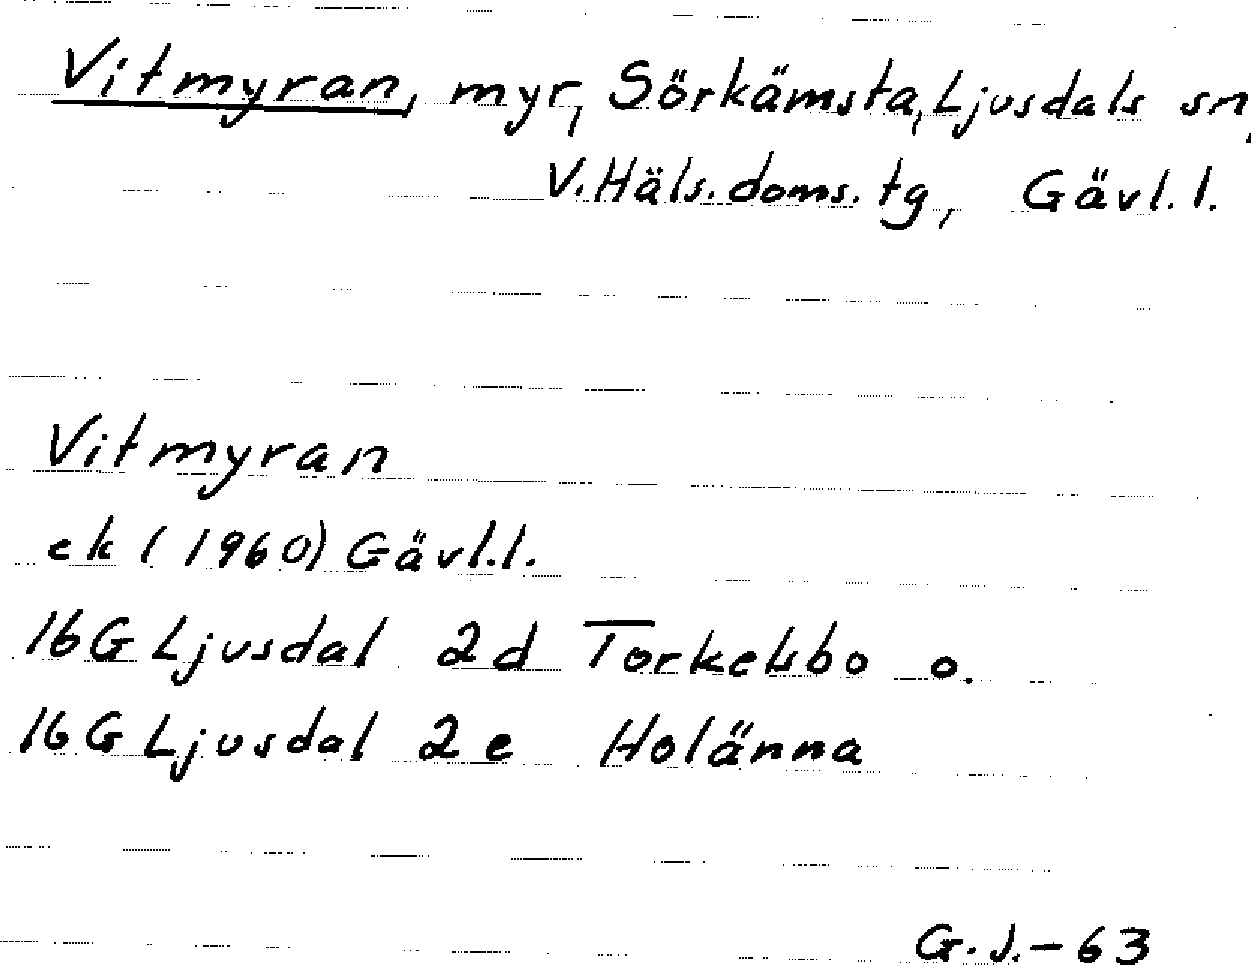 Vitmyran, myr, Sörkämsta, Ljusdals sn,
V. Häls. doms. tg, Gävl. l.
Vitmyran
ek (1960) Gävl. l.
16G Ljusdal 2d Torkelsbo o.
16G Ljusdal 2e Holänna
G.J.-63